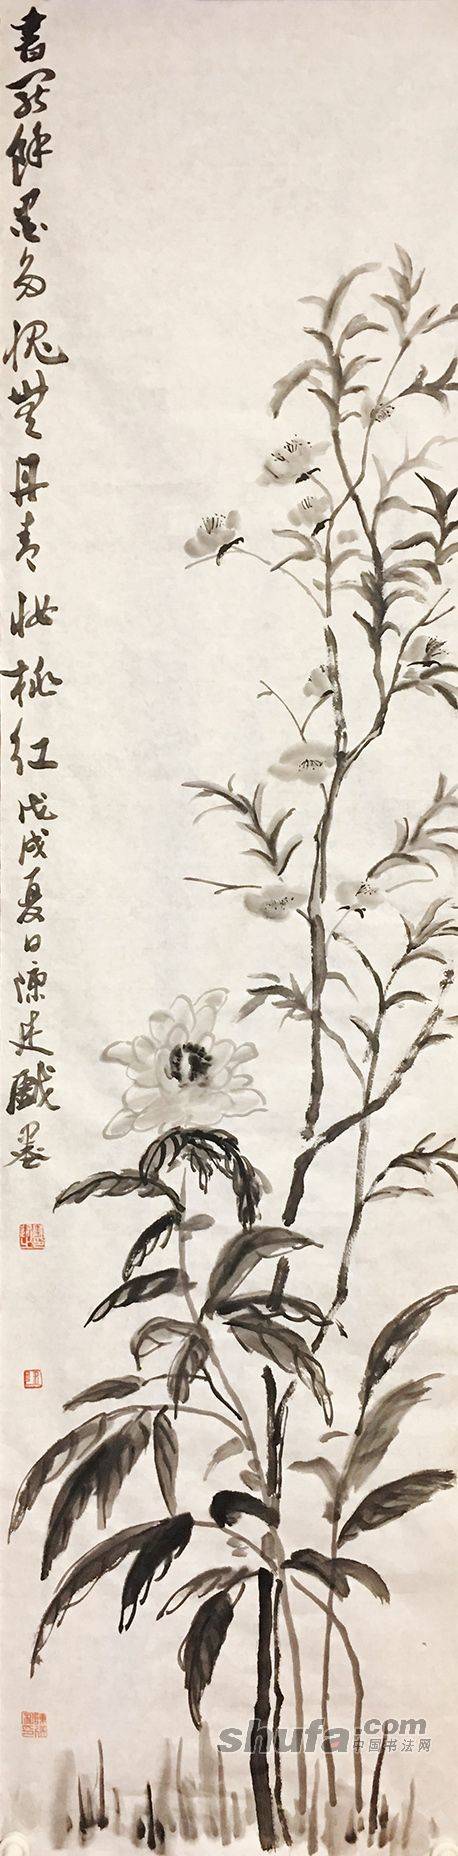 書罷餘墨多愧無丹青妝桃紅戊戌夏日陳戲墨
shufa.com
中国书法网